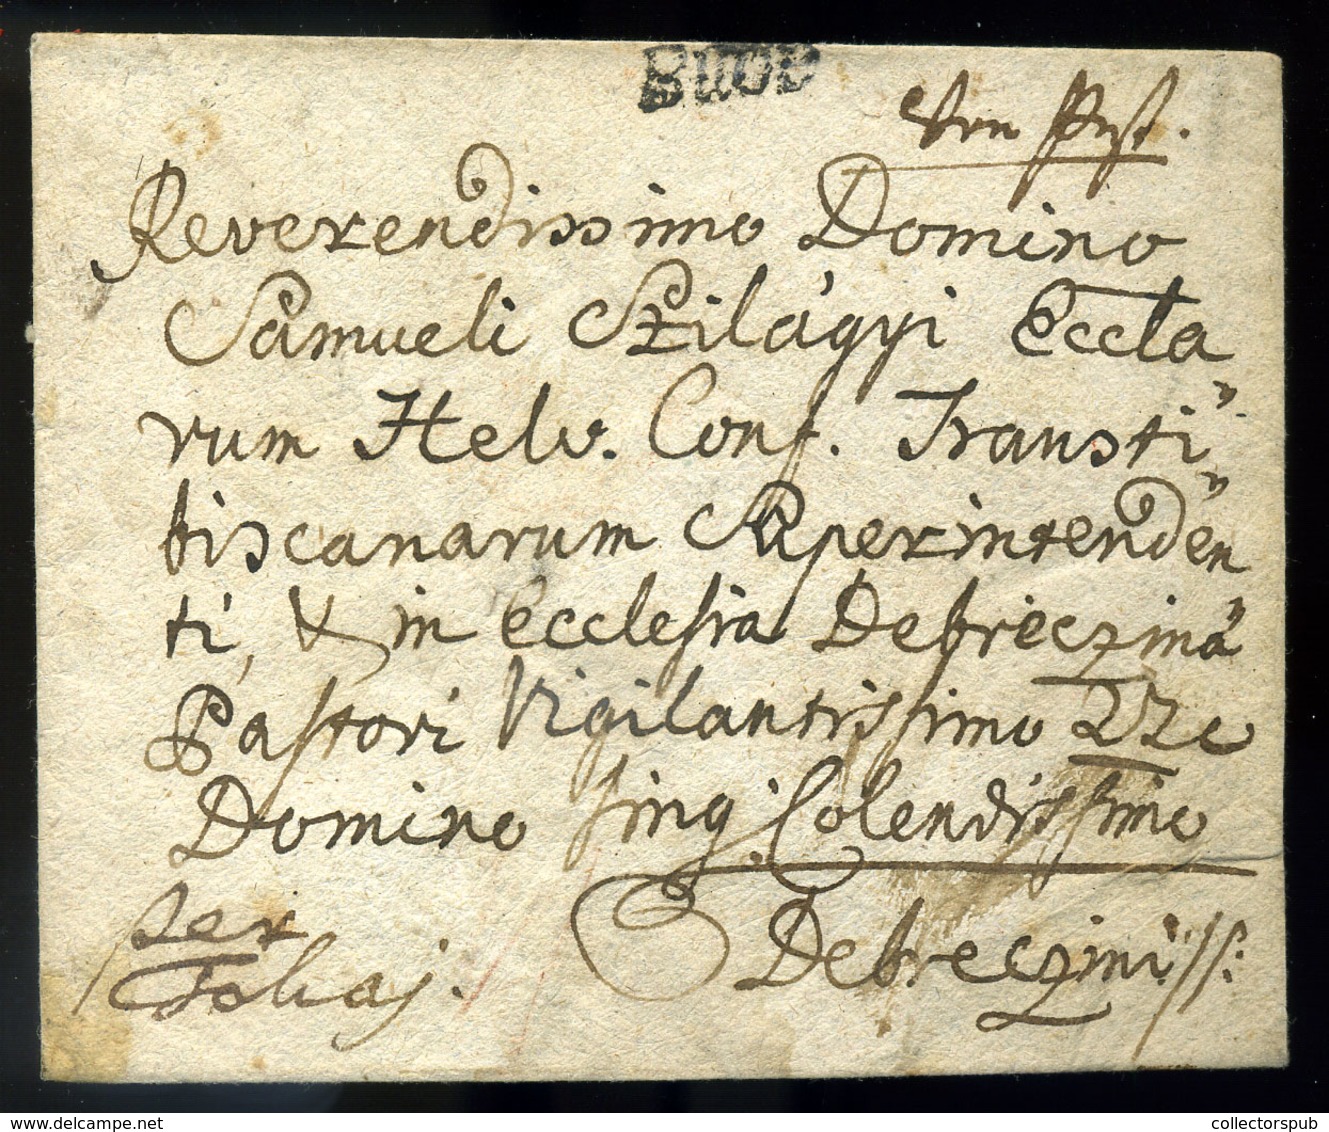 von Pest.
Reverendissimo Domino
Samueli Szilágyi Eccla
rum Helv. Conf. Transti"
biscanarum Superinten"
denti, & in Ecclesia Debreczinä
Pastori Vigilantissimo
Domino sing. Colendissimo
per
Tokaj.
Debreczini
collectorspub